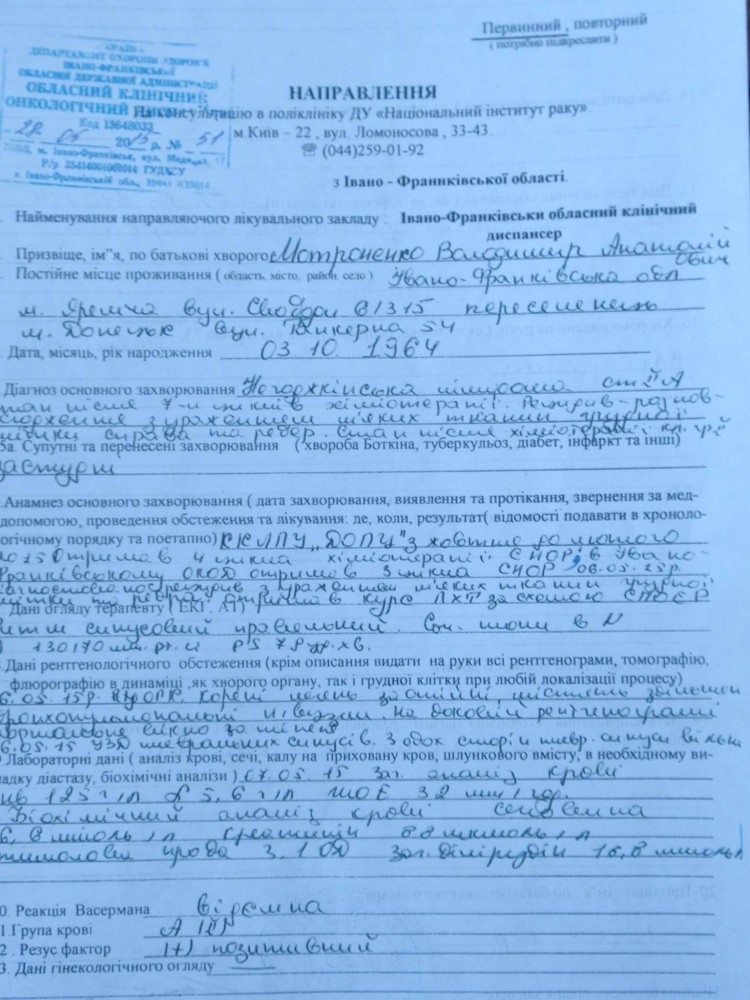 Первинний , повторний
( потрібно підкреслити )
УКРАЇНА
ДЕПАРТАМЕНТ ОХОРОНИ ЗДОРОВ'Я
ІВАНО-ФРАНКІВСЬКОЇ
ОБЛАСНОЇ ДЕРЖАВНОЇ АДМІНІСТРАЦІЇ
ОБЛАСНИЙ КЛІНІЧНИЙ
ОНКОЛОГІЧНИЙ
Код 13648033
2015 р. № 51
вул. Медична, 17
Р/р 35414001001014 ГУДКСУ
в Івано-Франківській обл.,
НАПРАВЛЕННЯ
На консультацію в поліклініку ДУ «Національний інститут раку».
м Київ – 22 , вул. Ломоносова , 33-43.
☏ (044)259-01-92
з Івано - Франниківської області.
Найменування направляючого лікувального закладу : Івано-Франківськи обласний клінічний
диспансер
Призвіще, ім"я, по батькові хворого Мотроненко Володимир Анатолійович
Постійне місце проживання ( область, місто, район село ) Івано-Франківська обл
м. Яремча вул. Свободи 613 15 переселенець
м. Донецьк вул. 54
Дата, місяць, рік народження 03. 10. 1964
Діагноз основного захворювання Негоджкінська лімфома ст ІІ А
стан після 7-и циклів хіміотерапії. Рецидив-розпов-
сюдження з ураженням м'яких тканин грудної
клітки справа та ребер. Стан після хіміотерапії кл. гр ІІ
5а. Супутні та перенесені захворювання ( хвороба Боткіна, туберкульоз, діабет, інфаркт та інші)
застуди
Анамнез основного захворювання ( дата захворювання, виявлення та протікання, звернення за мед-
допомогою, проведення обстеження та лікування: де, коли, результат( відомості подавати в хроноло-
огічному порядку та поетапно) ККЛПУ „ДОПЦ" з жовтня до лютого
2015 отримав 4 цикла хіміотерапії CHOP, в Івано-
Франківському ОКОД отримав 3 цикла CHOP 06.05.15р.
діагностовано рецидив з ураженням м'яких тканин грудної
клітки та ребра, отримав курс ПХТ за схемою
Дані огляду терапевту ( ЕКГ , АТ)
ритм синусовий правильний. Сер. тони в N
130/70 мм. рт. ст PS 78 уд. хв.
Дані рентгенологічного обстеження (крім описання видати на руки всі рентгенограми, томографію,
флюрографію в динаміці ,як хворого органу, так і грудної клітки при любій локалізації процесу)
6.05.15р. Корені легень містять збільшені
бронхопульмональні л. вузли. На боковій рентгенограмі
6.05.15 УЗД плевральних синусів. З обох сторін плевр. синуси вільні
Лабораторні дані ( аналіз крові, сечі, калу на приховану кров, шлункового вмісту, в необхідному ви-
падку діастазу, біохімічні аналізи ) 07.05.15 заг. аналіз крові
Нв 125 г/л 5,6 г/л ШОЕ 32 мм / год.
Біохімічний аналіз крові сечовина
6,8 ммоль/л креатинін 88 мкмоль/л
тимолова проба 3,1 ОД заг. білірубін 16,8 мкмоль/л
0. Реакція Васермана від'ємна
1 Група крові А (ІІ)
2 . Резус фактор (+) позитивний
3. Дані гінекологічного огляду